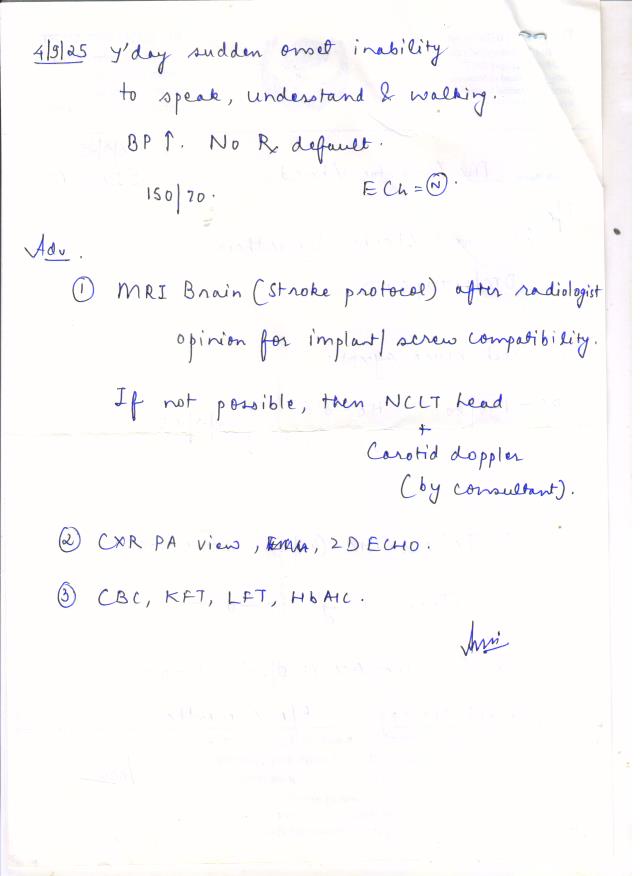 4/9/25 y'day sudden onset inability
to speak, understand & walking.
BP ↑. No Rx default.
150/70. ECG = Ⓝ.
Adv.
① MRI Brain (Stroke protocol) after radiologist
opinion for implant/screw compatibility.
If not possible, then NCCT head
+
Carotid doppler
(by consultant).
② CXR PA view, , 2D ECHO.
③ CBC, KFT, LFT, HbA1C.